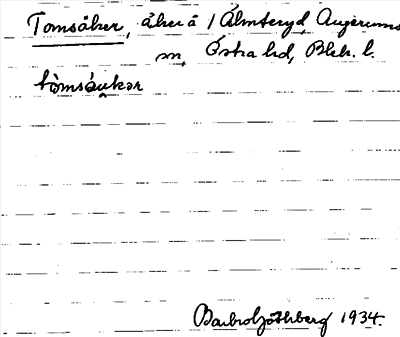 Tomsåker, åker å / Älmteryd, Augerums
sn, Östra hd, Blek. l.
tòmsá̤ukər
Barbro Götlberg 1934.